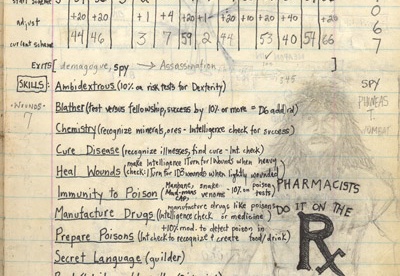 +20 +20 +1 +4 +20 +20 +10 +20 +20
adjust
current scheme 44 46 3 7 59 2 44 53 40 54 66
0
6
7
EXITS [demagogue, spy → Assassination]
SKILLS: Ambidextrous (10% on risk tests for Dexterity)
SPY
Blather (test versus fellowship, success by 10% or more = D6 add'l rd)
-WOUNDS-
7
Chemistry (recognize minerals, ores - Intelligence check for success)
Cure Disease (recognize illnesses, find cure - Int check)
Heal Wounds (make Intelligence 1 Turn for 1 Wounds when heavy
check: 1 Turn for 1D3 wounds when lightly wounded)
Immunity to Poison (Manbane, snake venoms -10% on poison tests)
PHARMACISTS
Manufacture Drugs (manufacture drugs like poisons
(Intelligence check or medicine)
DO IT ON THE
Rx
Prepare Poisons (+10% mod. to detect poison in
Int check to recognize & create food/drink)
Secret Language (guilder)